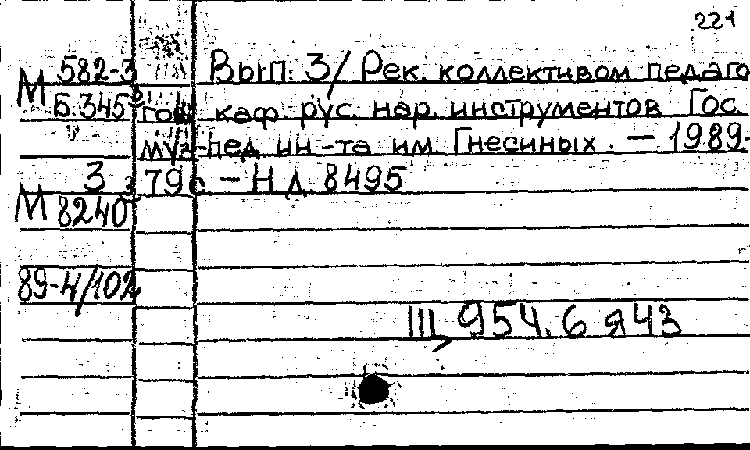 221
582-3 Вып. 3/ Рек. коллективом педаго
М Б.345 гов каф рус. нар. инструментов Гос.
муз-пед ин-та им. Гнесиных. — 1989.-
3 79с. — Н д. 8495
М 8240
89-4/102
Щ 954.6 я43